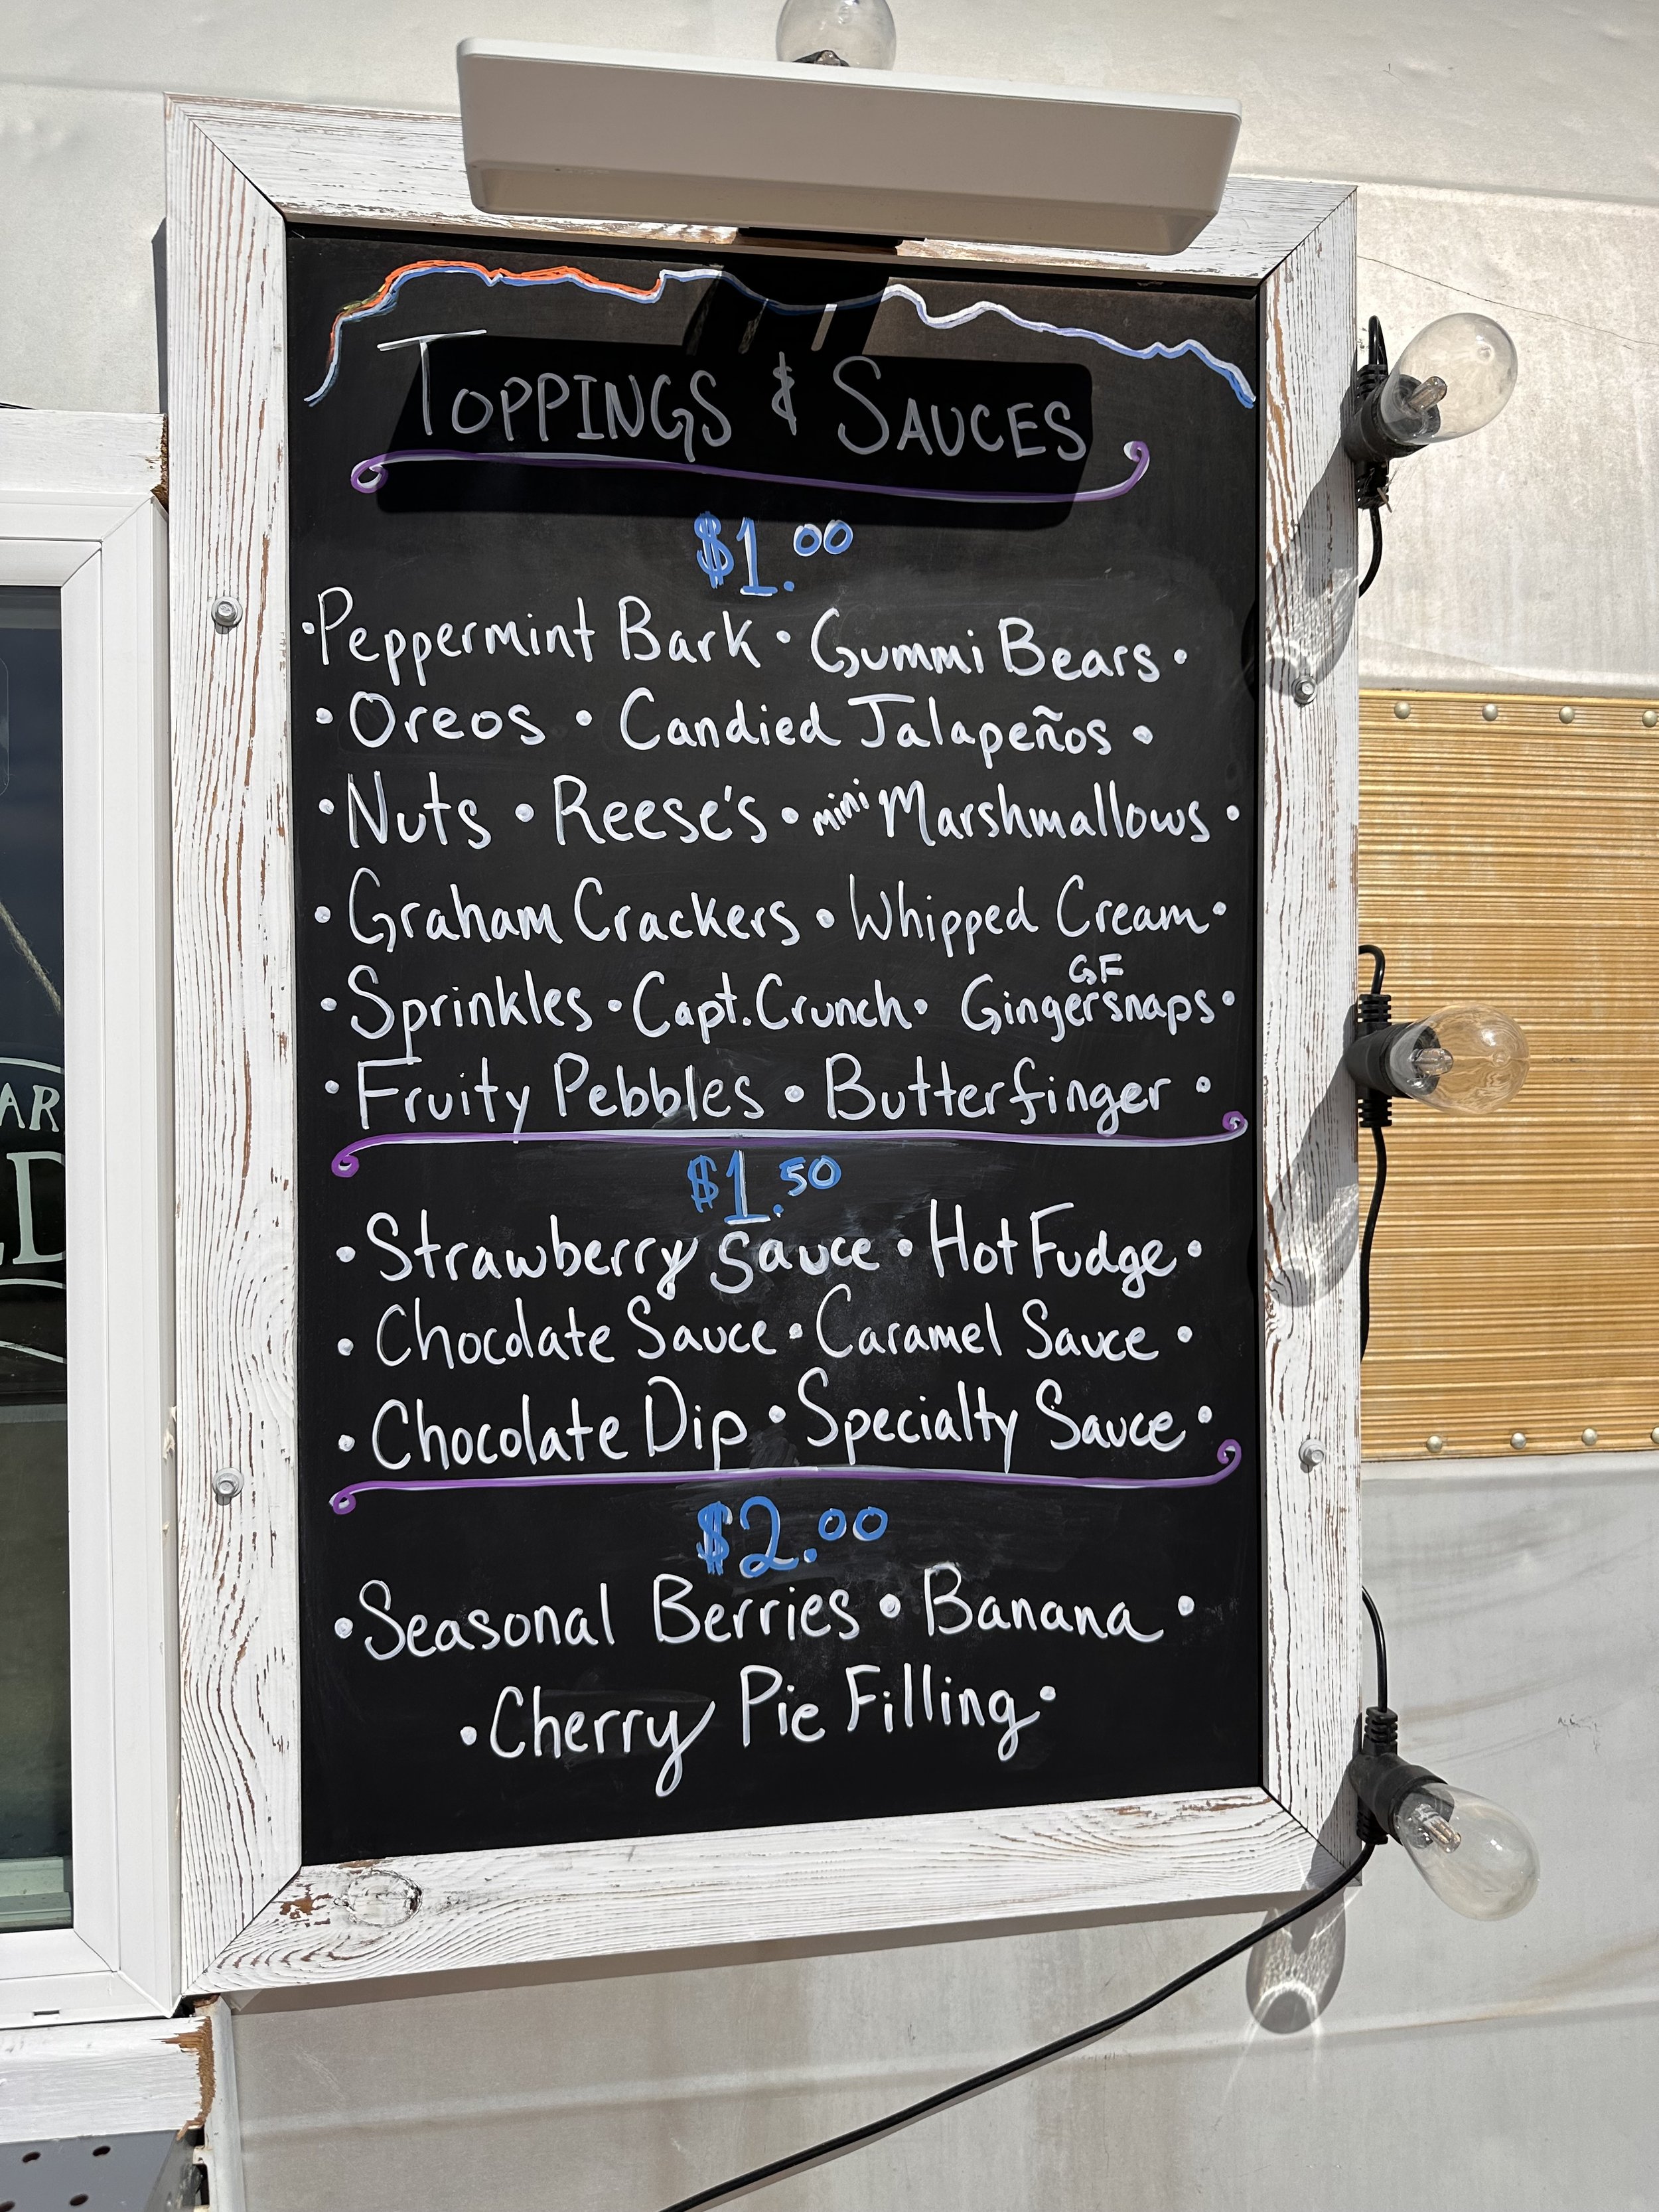 TOPPINGS & SAUCES
$1.00
•Peppermint Bark • Gummi Bears •
• Oreos • Candied Jalapeños •
• Nuts • Reese's • mini Marshmallows •
• Graham Crackers • Whipped Cream •
• Sprinkles • Capt. Crunch • GF Gingersnaps •
• Fruity Pebbles • Butterfinger •
$1.50
• Strawberry Sauce • Hot Fudge •
• Chocolate Sauce • Caramel Sauce •
• Chocolate Dip • Specialty Sauce •
$2.00
• Seasonal Berries • Banana •
• Cherry Pie Filling •